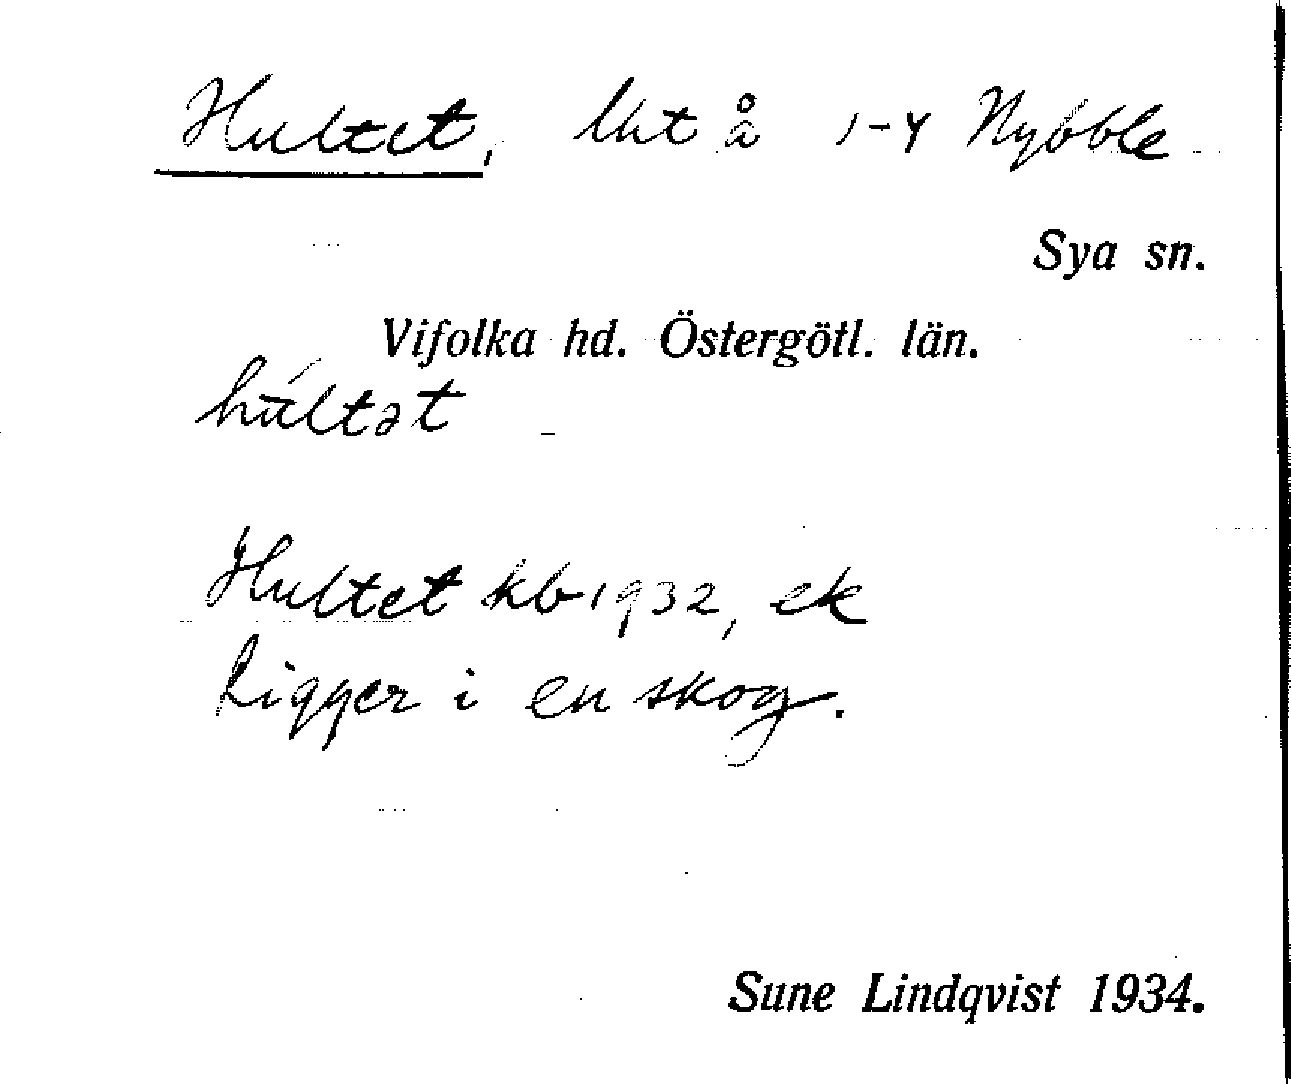 Hultet, lht å 1-4 Nybble
Sya sn.
Vifolka hd. Östergötl. län.
húltət
Hultet kb 1932, ek
Ligger i en skog.
Sune Lindqvist 1934.